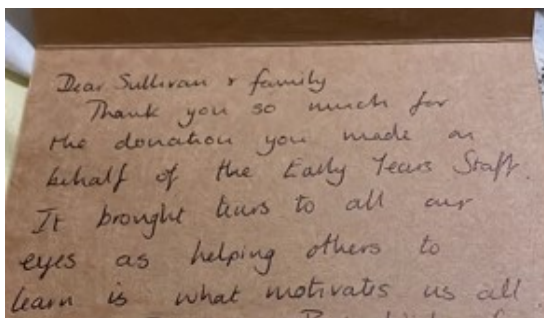 Dear Sullivan & family
Thank you so much for
the donation you made on
behalf of the Early Years Staff.
It brought tears to all our
eyes as helping others to
learn is what motivates us all.